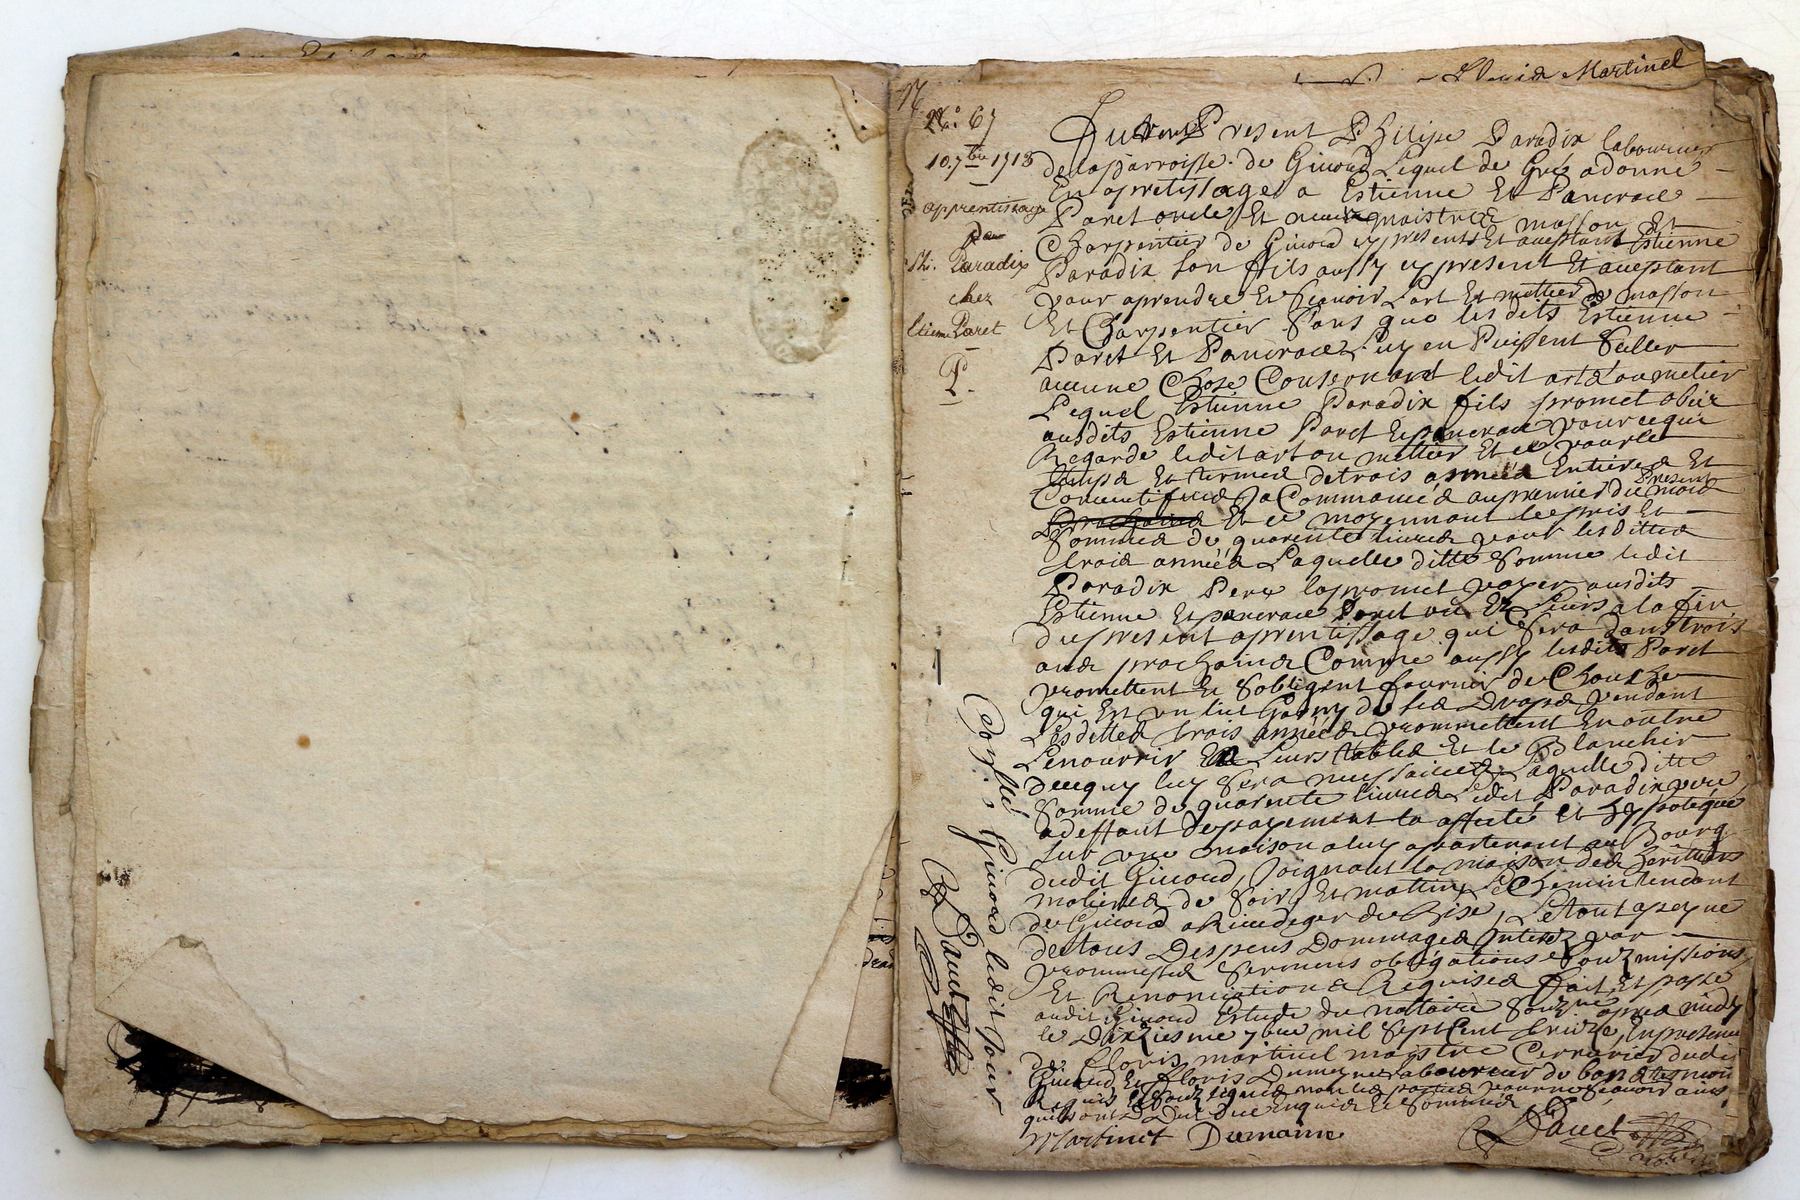 Martinel
No. 67
10. 7bre 1713
apprentissage
par
Phi. Paradix
chez
Etien. Paret
P.
Fut Present Philipe Paradix laboureur
de la parroisse de Givord Lequel de Gré a donné
En apretissage a Estienne Et Pancrace
Paret oncle Et maistres masson Et
Charpentier de Givord cy presents Et aceptant Estienne
Paradix son fils aussy cy present Et aceptant
pour aprendre Et scauoir L'art Et mettier de masson
Et Charpentier Sans que lesdits Estienne
Paret Et Pancrace Luy en Puissent Seller
aucune Chose Consernant ledit art ou metier
Lequel Estienne Paradix fils promet obeir
ausdits Estienne Paret Et pancrace pour ce qui
Regarde ledit art ou mettier Et ce pour le
temps Et termes de trois années Entieres Et
Consecutifues Ja Commancé au premier du present mois
Et ce moyennant le pris Et
Somme de quarente liures pour lesdittes
trois années Laquelle ditte Somme ledit
Paradix Pere la promet payer ausdits
Estienne Et pancrace Paret a la fin
du present aprentissage qui Sera dans trois
ans prochains Comme aussy lesdits Paret
promettent Et Sobligent fournir de Couche
qui Est un lict Garny de Ses Draps pendant
Lesdittes trois années promettent En outre
Le nourrir a Leurs tables Et le Blanchir
de ce quy luy Sera nessaire Laquelle ditte
Somme de quarente liures Ledit Paradix pere
a deffaut de payement la affecté Et hypotequé
Sur une maison a luy apartenant au Bourg
dudit Givord, Joignant la maison des heritiers
de Soir Et matin, Le Chemin tendant
de Givord a Riuedegier de Bise, Le tout a peyne
de tous Despens Dommages Interez par
prommesses Sermens obligations Soubzmissions
Et Renonciations Requises fait Et passé
audit Givord Estude du notaire Soubz.né apres midy
le Dixiesme 7bre mil Sept Cent treize, En presence
de Floris martinel maistre Cerrurier dudit
Givord Et Floris laboureur de tesmoins
Requis Et Soubzsignés non les parties pour ne Scauoir ainsi
quils ont Dit de ce Enquis Et Sommés
Martinel Dumaine
Dauet
Con.lé a Givord ledit Jour